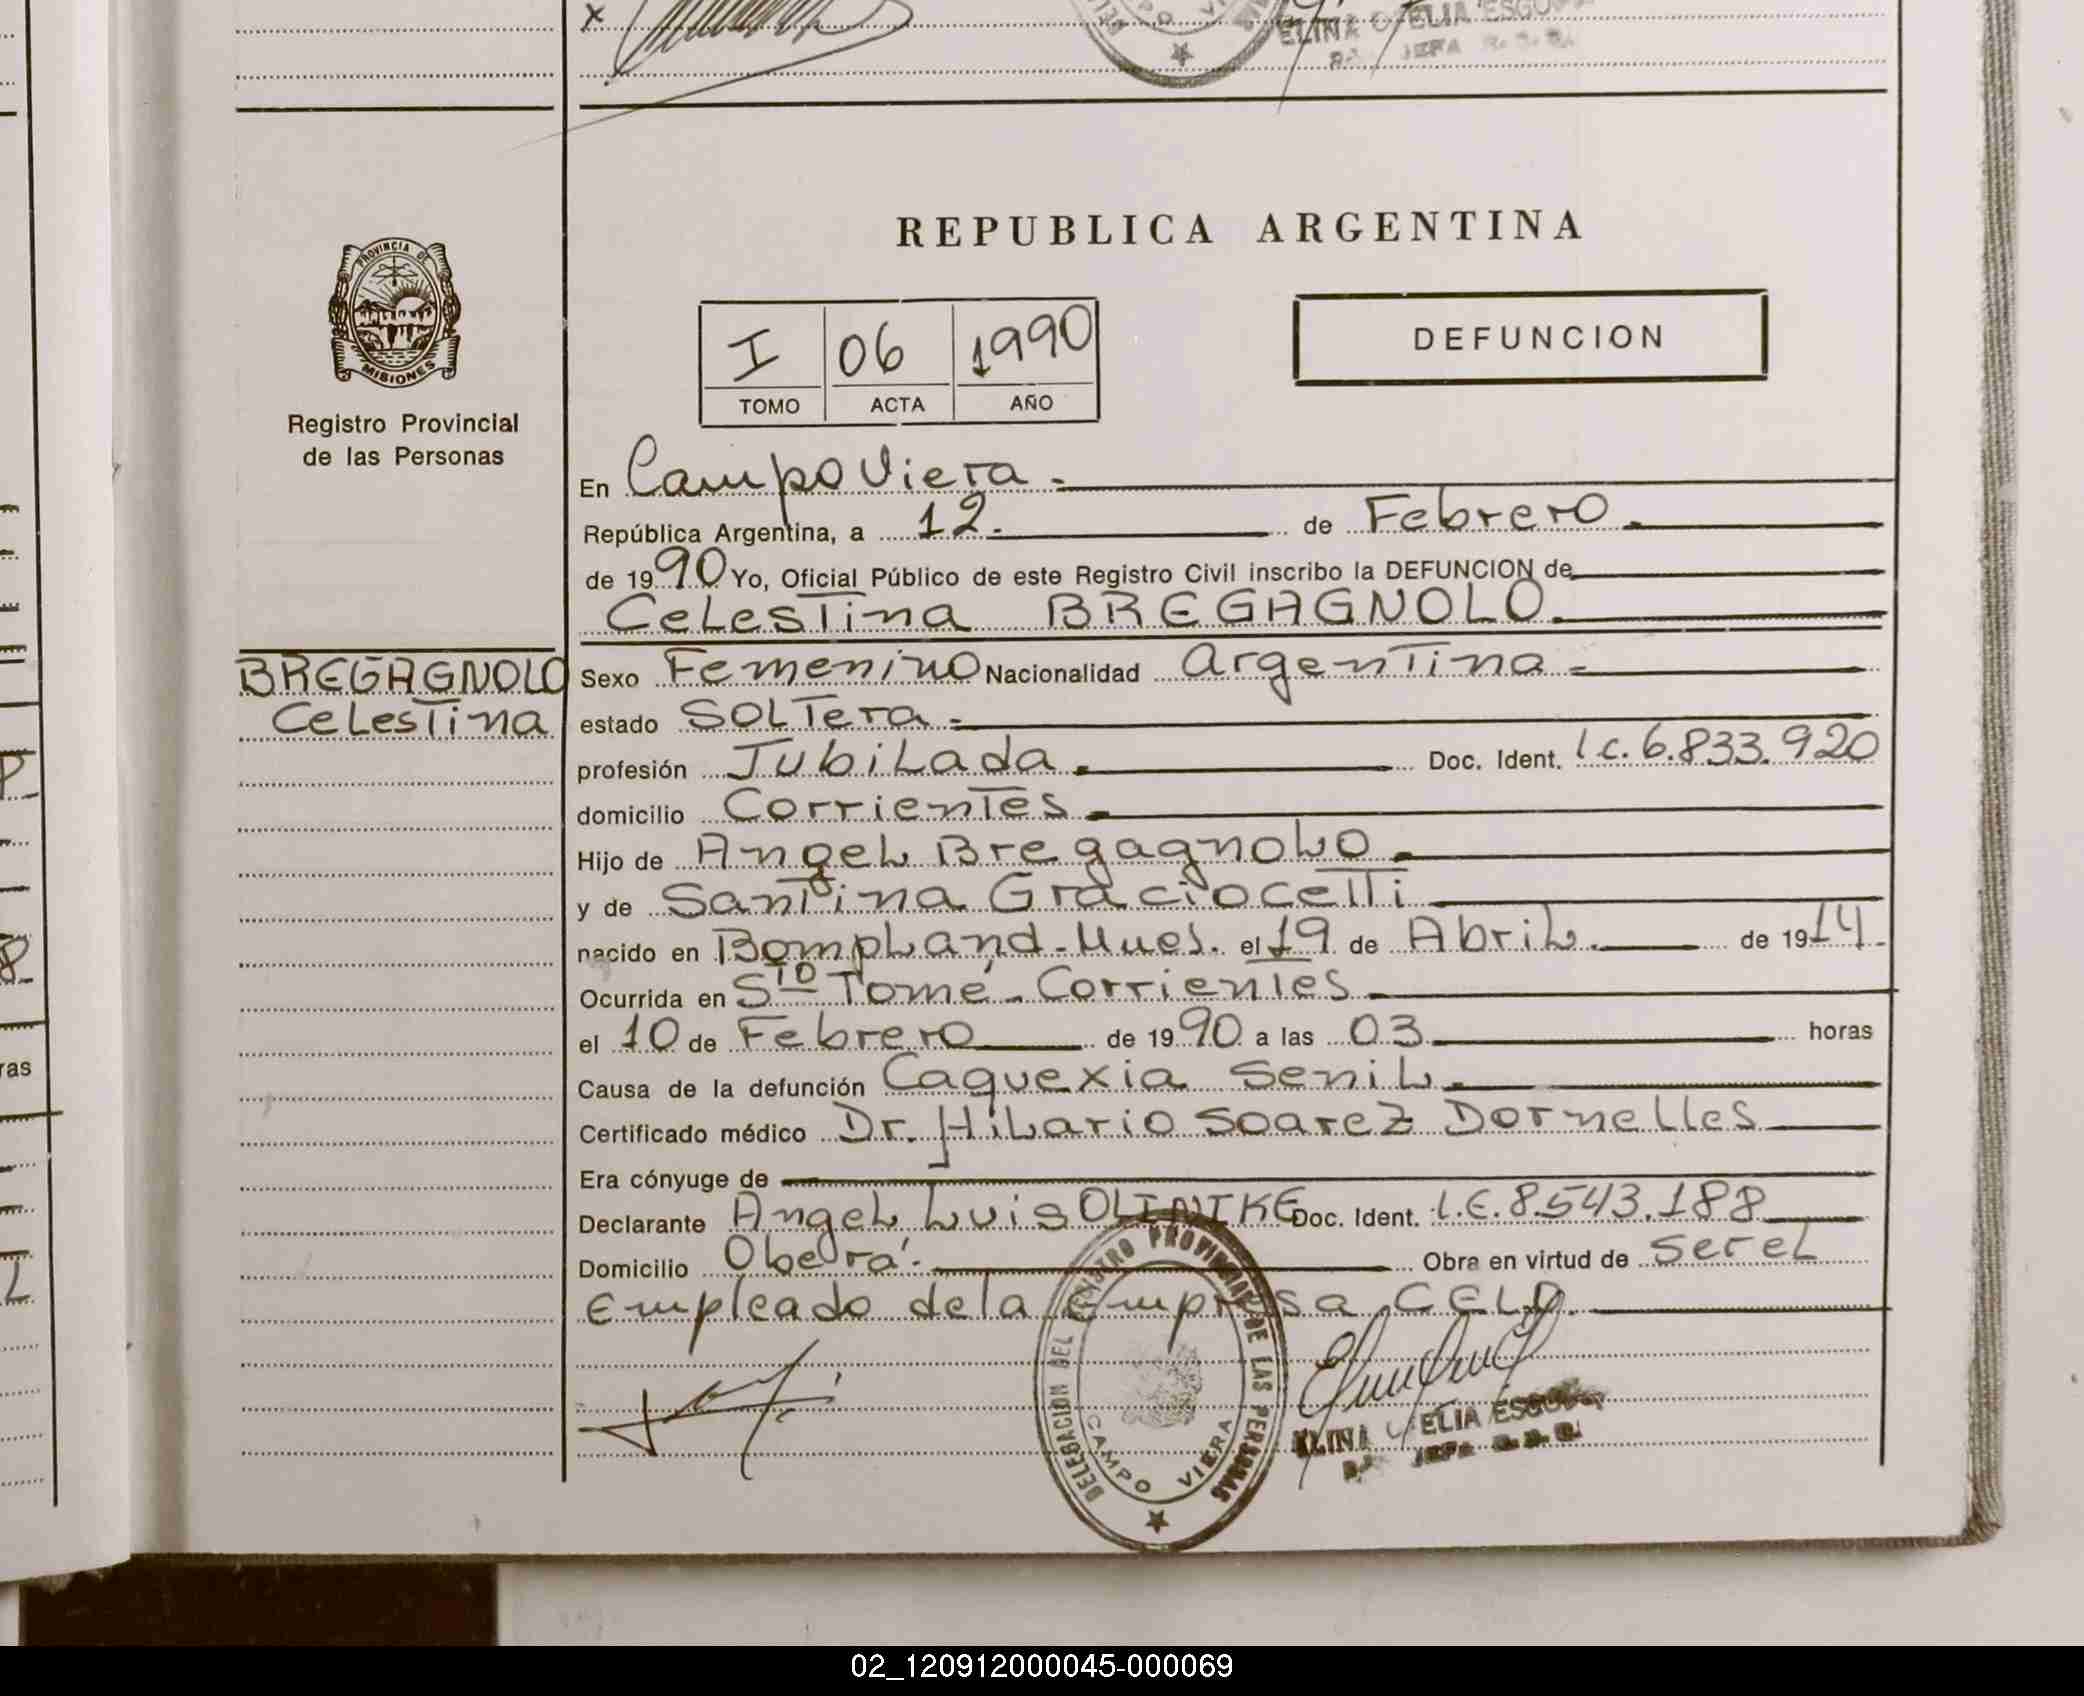 REPUBLICA ARGENTINA
PROVINCIA DE
MISIONES
Registro Provincial
de las Personas
I 06 1990
TOMO ACTA AÑO
DEFUNCION
En Campo Viera.-
República Argentina, a 12. de Febrero.
de 1990 Yo, Oficial Público de este Registro Civil inscribo la DEFUNCION de
Celestina BREGAGNOLO.
BREGAGNOLO
Celestina
Sexo Femenino Nacionalidad Argentina-
estado Soltera-
profesión Jubilada. Doc. Ident. l.c. 6.833.920
domicilio Corrientes
Hijo de Angel Bregagnolo.
y de Santina Graciocetti
nacido en Bompland-Mnes. el 19 de Abril. de 1914
Ocurrida en Sto Tomé-Corrientes
el 10 de Febrero de 1990 a las 03 horas
Causa de la defunción Caquexia Senil.
Certificado médico Dr. Hilario Soarez Dornelles
Era cónyuge de
Declarante Angel Luis OLINIKE Doc. Ident. l.E.8.543.188
Domicilio Oberá. Obra en virtud de Serel
Empleado dela Empresa CELD.
DELEGACION DEL REGISTRO PROVINCIAL DE LAS PERSONAS
CAMPO VIERA
ELINA OFELIA
JEFA
02_120912000045-000069